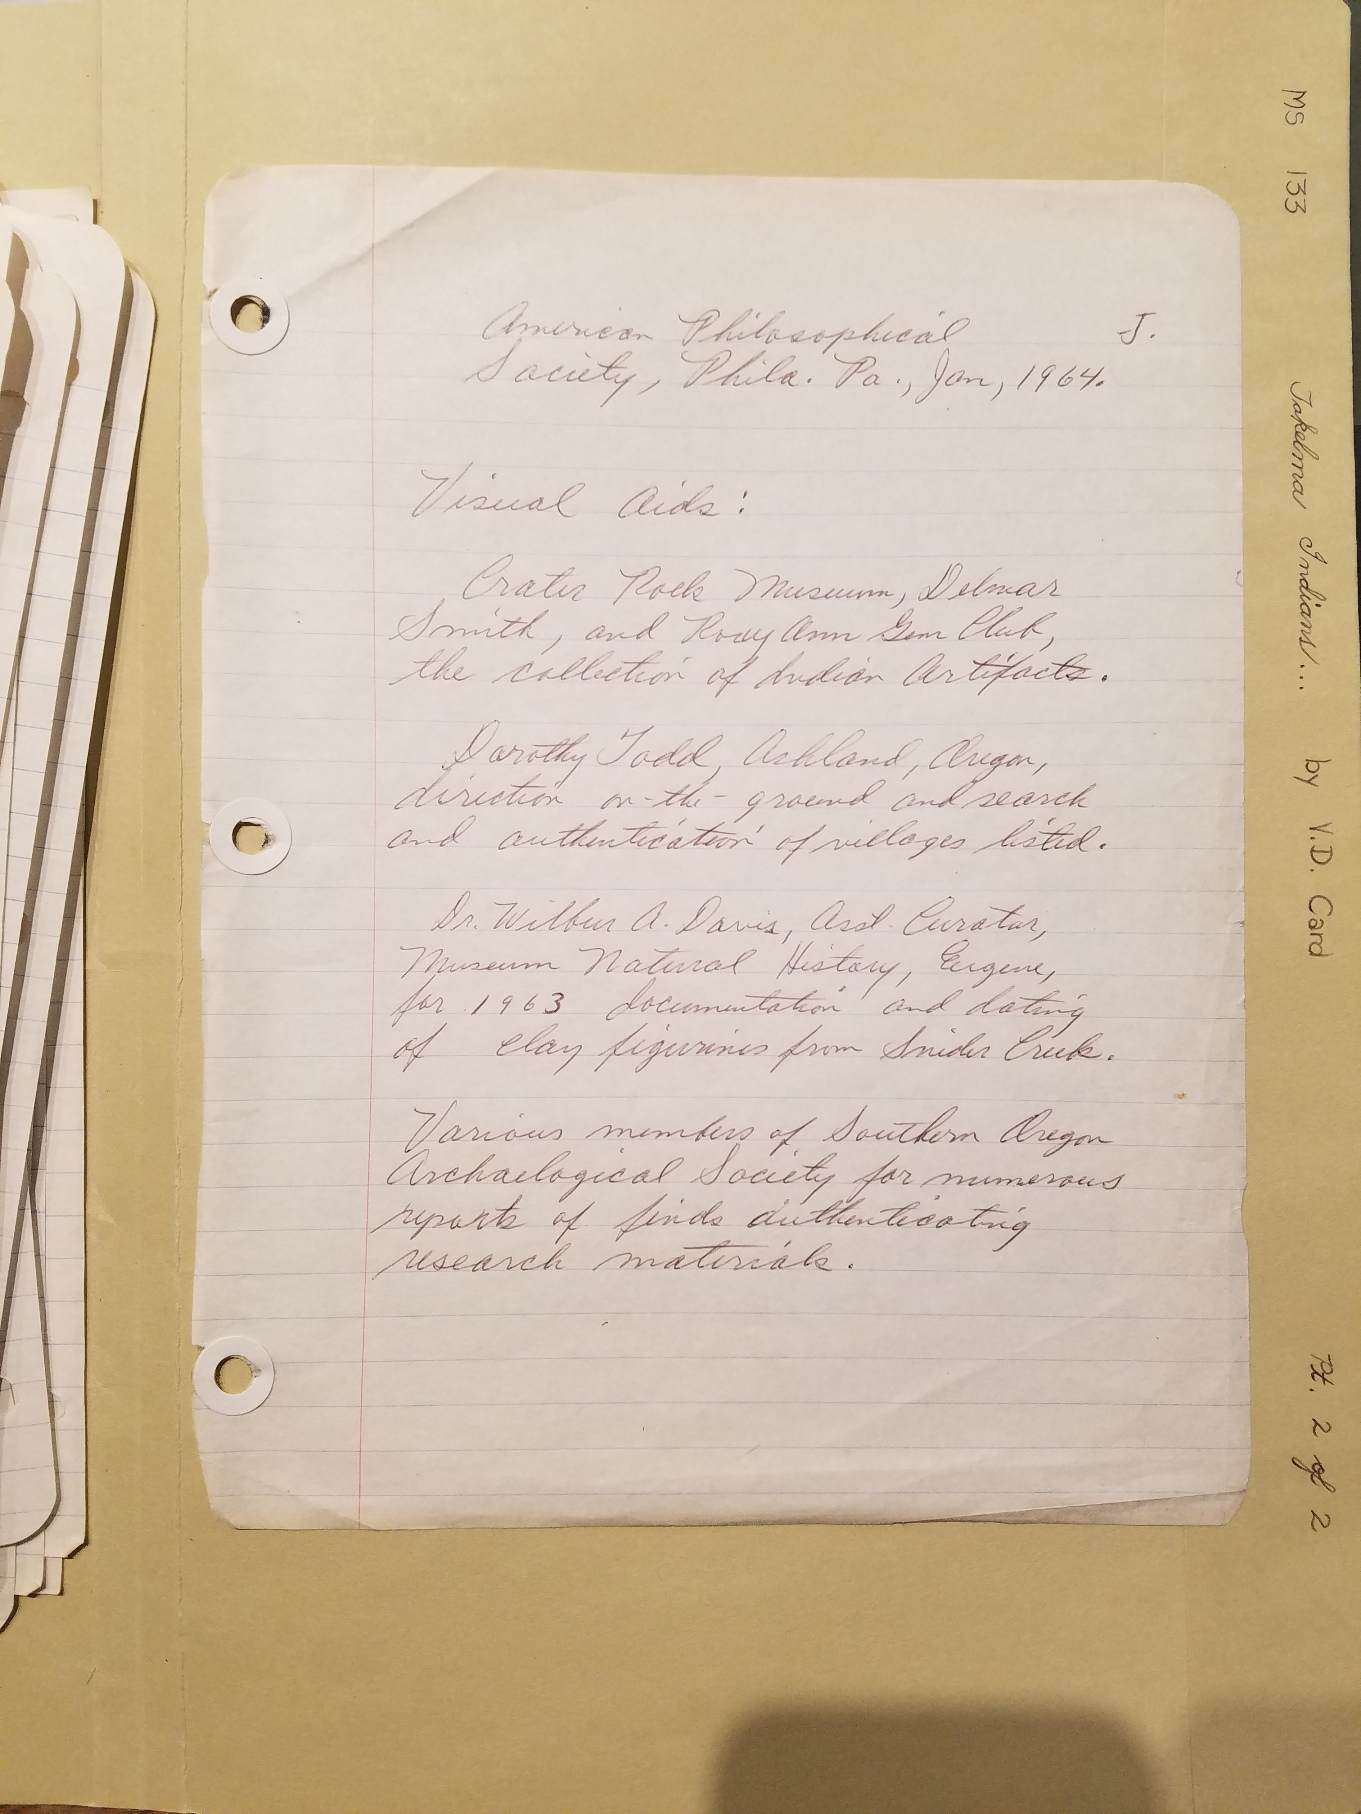 American Philosophical J.
Society, Phila. Pa., Jan, 1964.
Visual Aids:
Crater Rock Museum, Delmar
Smith, and Roxy Ann Gem Club,
the collection of Indian Artifacts.
Dorothy Todd, Ashland, Oregon,
direction on-the-ground and search
and authentication of villages listed.
Dr. Wilbur A. Davis, Asst. Curator,
Museum Natural History, Eugene,
for 1963 documentation and dating
of clay figurines from Snider Creek.
Various members of Southern Oregon
Archaelogical Society for numerous
reports of finds authenticating
research materials.
MS 133 Takelma Indians... by V.D. Card Pt. 2 of 2